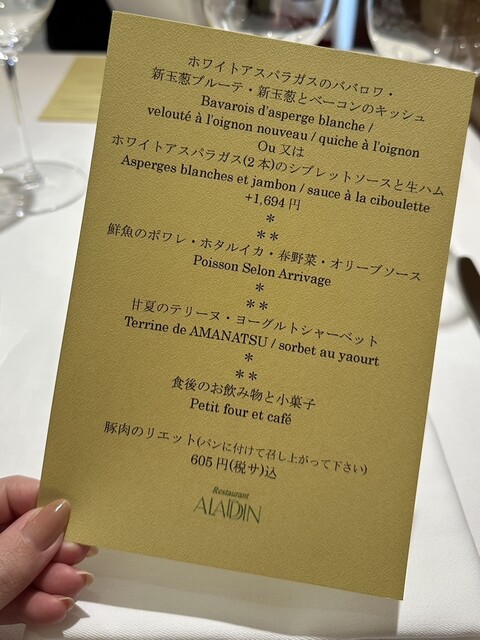 ホワイトアスパラガスのババロワ・
新玉葱ブルーテ・新玉葱とベーコンのキッシュ
Bavarois d'asperge blanche /
velouté à l'oignon nouveau / quiche à l'oignon
Ou 又は
ホワイトアスパラガス(2本)のシブレットソースと生ハム
Asperges blanches et jambon / sauce à la ciboulette
+1,694 円
*
**
鮮魚のポワレ・ホタルイカ・春野菜・オリーブソース
Poisson Selon Arrivage
*
**
甘夏のテリーヌ・ヨーグルトシャーベット
Terrine de AMANATSU / sorbet au yaourt
*
**
食後のお飲み物と小菓子
Petit four et café
豚肉のリエット(パンに付けて召し上がって下さい)
605 円(税サ)込
Restaurant
ALADDIN